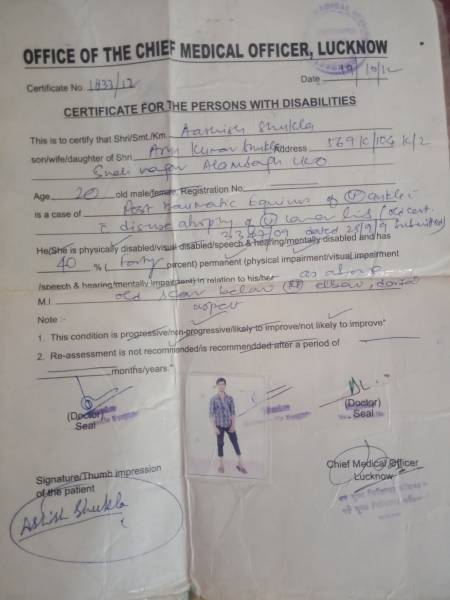 OFFICE OF THE CHIEF MEDICAL OFFICER, LUCKNOW
Certificate No. 1833/12 Date 19/10/12
CERTIFICATE FOR THE PERSONS WITH DISABILITIES
This is to certify that Shri/Smt./Km. Aashish Shukla
son/wife/daughter of Shri Arun Kumar Shukla Address 569 K/104 K/2
Alambagh LKO
Age 20 old male/female. Registration No.
is a case of Post Traumatic Equinus of ankle
disuse atrophy of lower limb (old cert.
dated submitted)
He/She is physically disabled/visual disabled/speech & hearing/mentally disabled and has
40 % (forty percent) permanent (physical impairment/visual impairment
/speech & hearing/mentally impairment) in relation to his/her as above
M.I. old scar below (R) elbow, dorsal
aspect
Note :-
1. This condition is progressive/non-progressive/likely to improve/not likely to improve*
2. Re-assessment is not recommended/is recommendded after a period of
months/years.*
(Doctor) (Doctor)
Seal Seal
Chief Medical Officer
Lucknow
Signature/Thumb impression
of the patient
Ashish Shukla